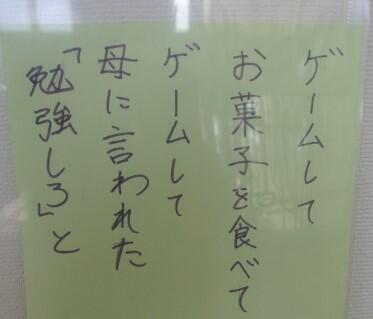 ゲームして
お菓子を食べて
ゲームして
母に言われた
「勉強しろ」と